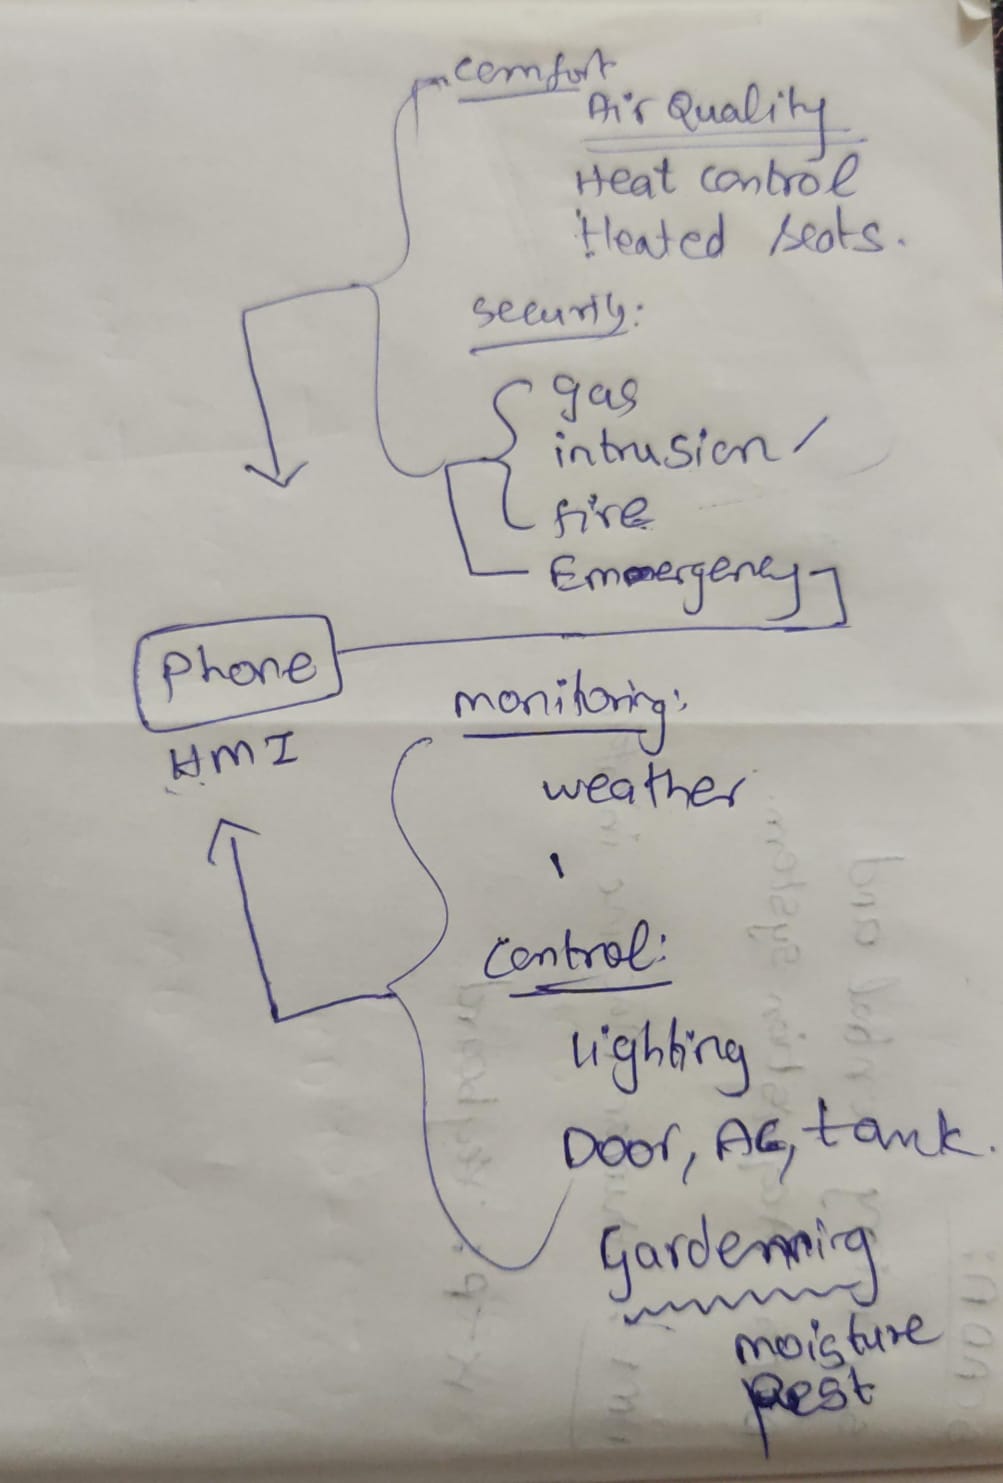 comfort
Air Quality
Heat control
Heated seats.
security:
gas
intrusion
fire
Emmergency
Phone
HMI
monitoring:
weather
control:
lighting
Door, AC, tank.
Gardenning
moisture
pest